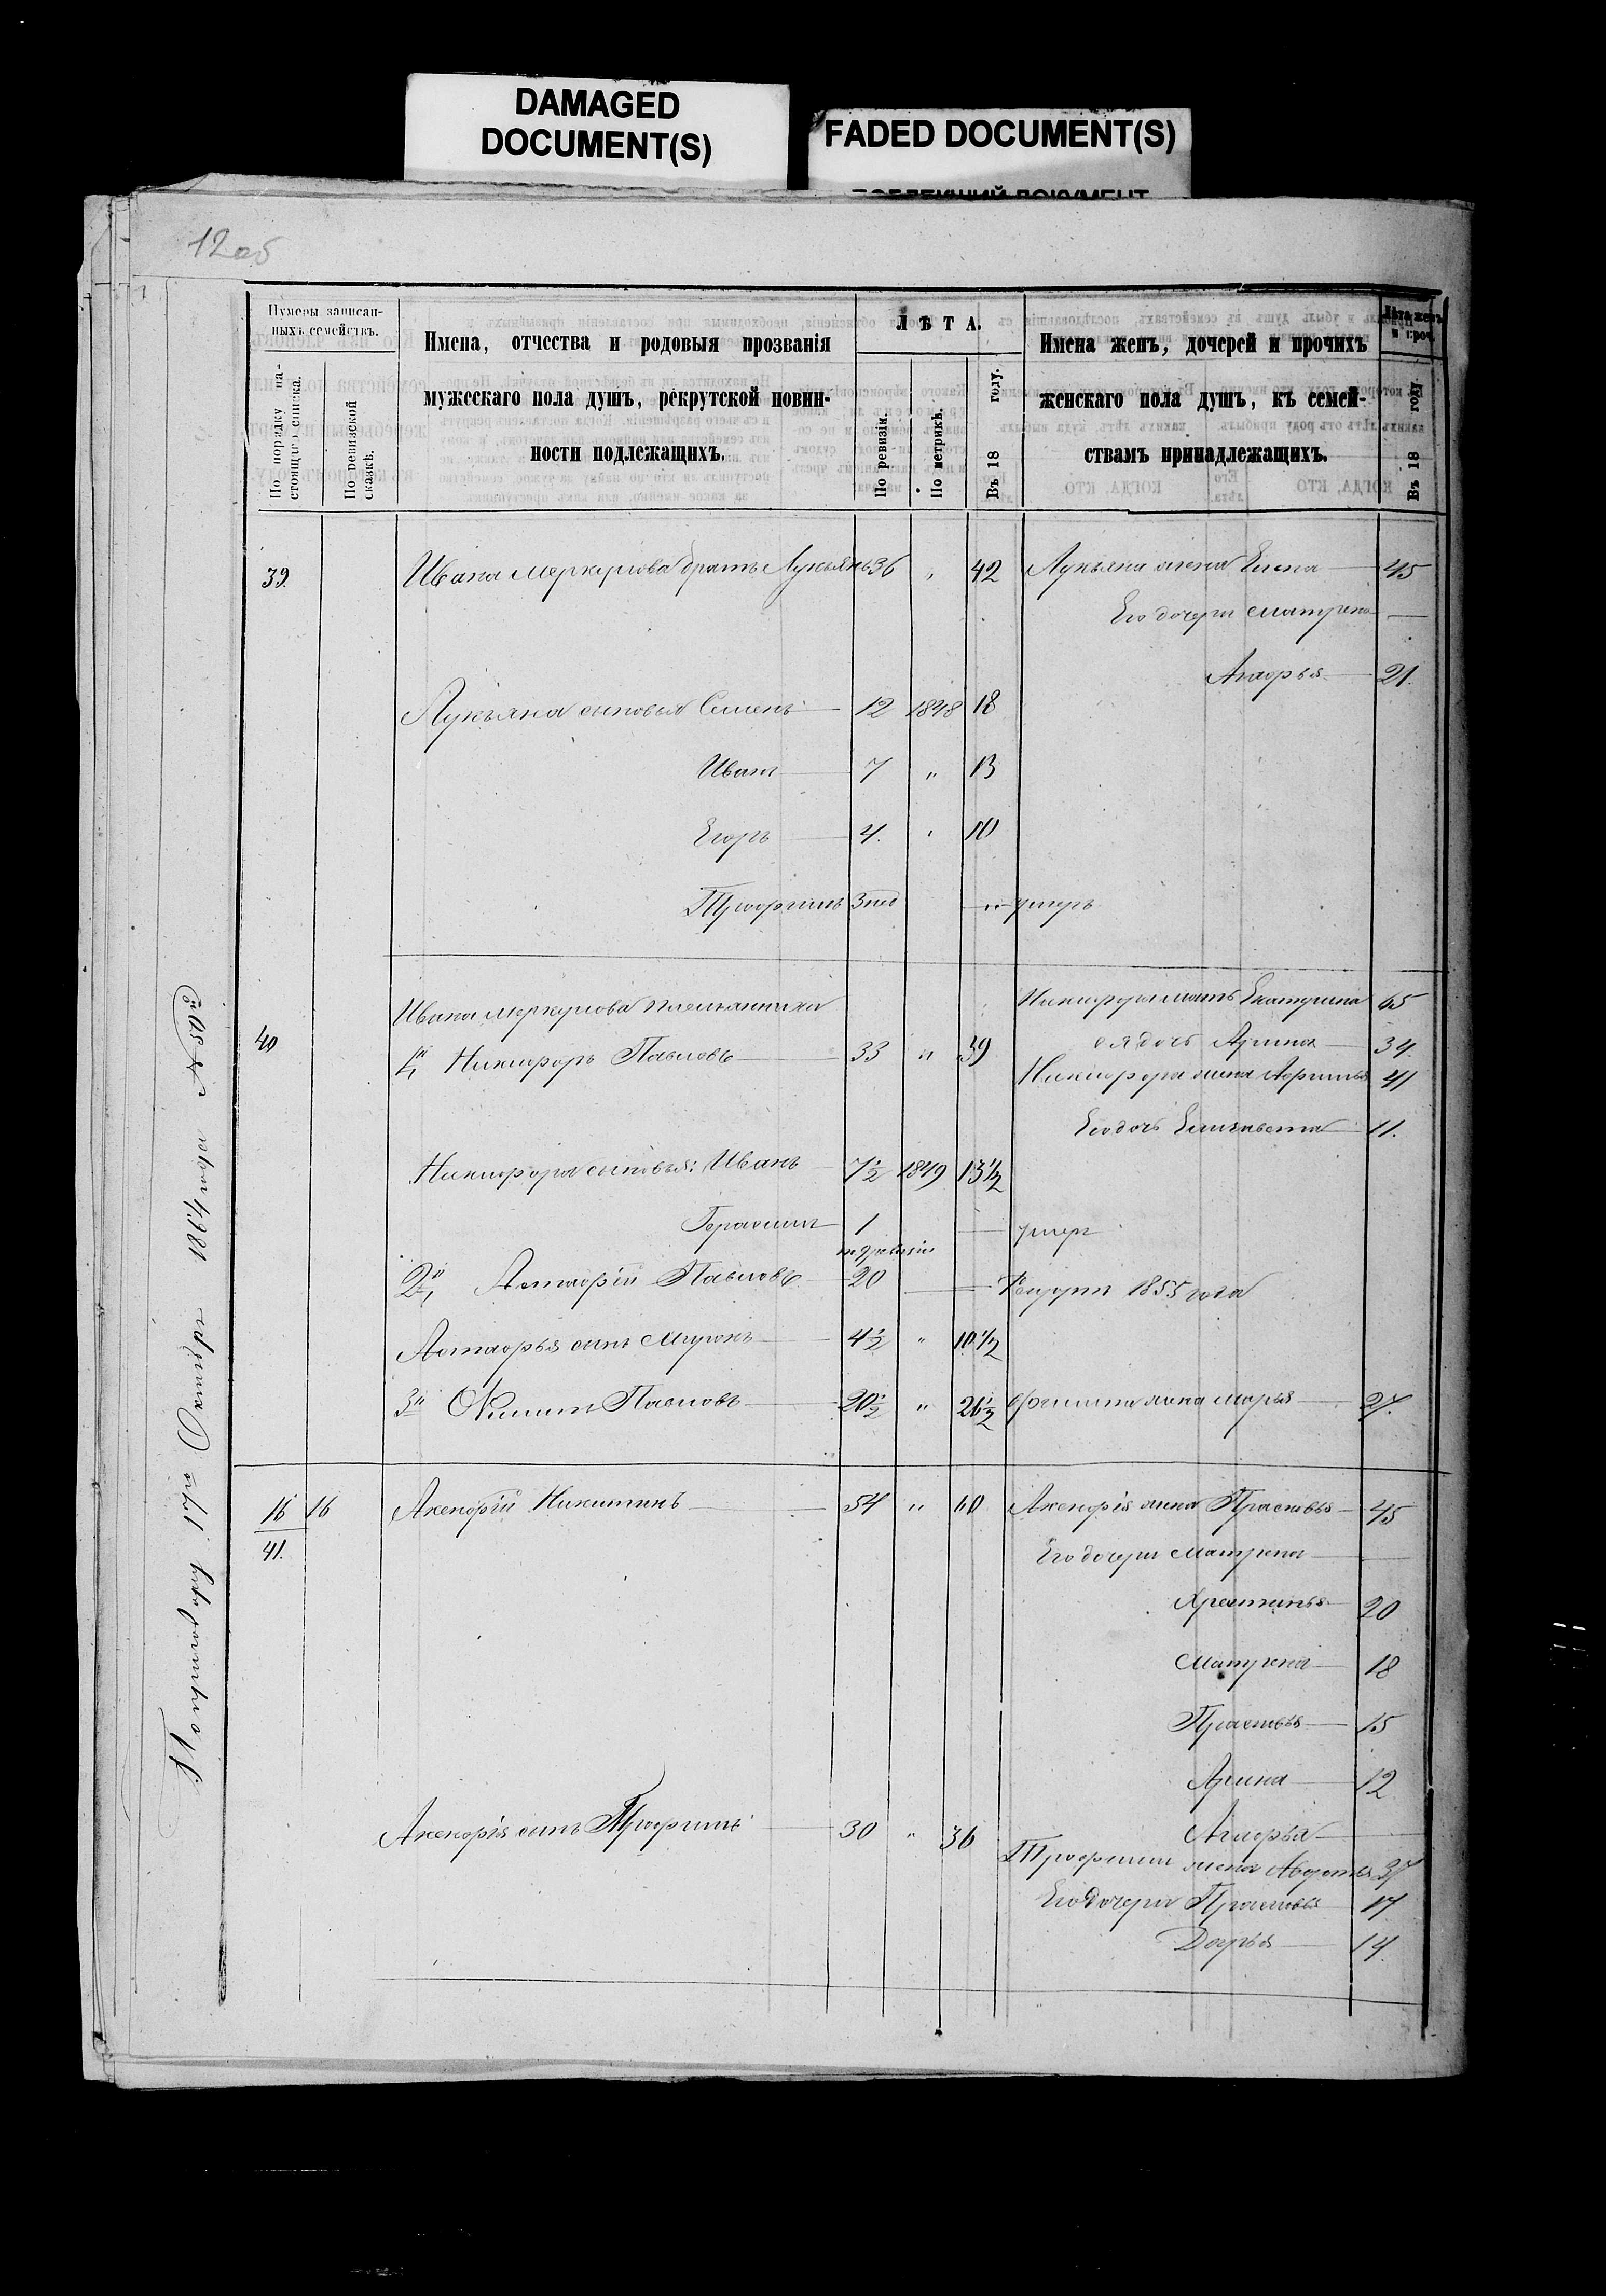 DAMAGED
DOCUMENT(S)
FADED DOCUMENT(S)
12об
Нумеры записан-
ныхъ семействъ.
По порядку на-
стоящаго списка.
По ревизской
сказкѣ.
Имена, отчества и родовыя прозванія
мужескаго пола душъ, рекрутской повин-
ности подлежащихъ.
ЛѢТА.
По ревизіи.
По метрикѣ.
Въ 18 году.
Имена женъ, дочерей и прочихъ
женскаго пола душъ, къ семей-
ствамъ принадлежащихъ.
Лѣта женъ
и проч.
Въ 18 году
39. Ивана Меркулова братъ Лукьянъ 36 " 42 Лукьяна жена Елена 45
Его дочери Матрена —
Агафья 21.
Лукьяна сыновья Семенъ 12 1848 18
Иванъ 7 " 13
Егоръ 4. " 10
Трофимъ 3 нед " умеръ
Ивана Меркулова племянники Никифора мать Екатерина 65
40 1й Никифоръ Павловъ 33 " 39 ея дочь Арина 34
Никифора жена Афимья 41
Его дочь Елизавета 11.
Никифора сыновья: Иванъ 7½ 1849 13½
Герасимъ 1 — умеръ
2й Астафій Павловъ 20 — Рекрутъ 1855 года
Астафья сынъ Миронъ 4½ " 10½
3й Филиппъ Павловъ 20½ " 26½ Филиппа жена Марья 27.
16 16 Аксентій Никитинъ 54 " 60 Прасковья 45
41. Его дочери Матрена —
Христинья 20
Матрена 18
Прасковья 15
Арина 12
сынъ Трофимъ 30 " 36 Агафья —
Трофима жена Авдотья 37
Его дочери Прасковья 17
Дарья 14.